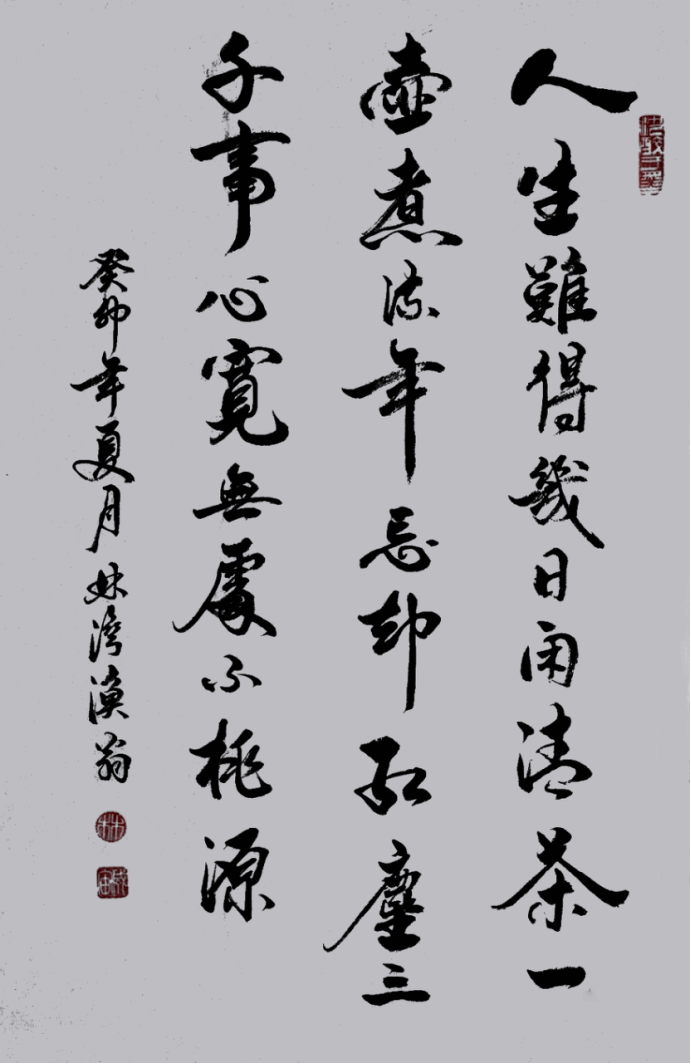 人生難得幾日闲清茶一
壺煮流年忘却红塵三
千事心寬無處不桃源
癸卯年夏月 妹湾漁翁
林